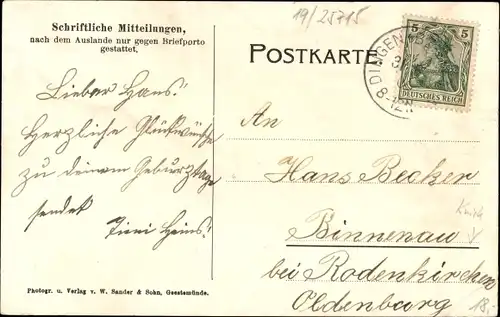 19/25715
Schriftliche Mitteilungen,
nach dem Auslande nur gegen Briefporto
gestattet.
POSTKARTE
5 5
DEUTSCHES REICH
8-12N
Lieber Hans!
Herzliche Glückwünsche
zu deinem Geburtstage
sendet
Heini.
An
Hans Becker
Binnenau
bei Rodenkirchen
Oldenburg
18.-
Photogr. u. Verlag v. W. Sander & Sohn, Geestemünde.